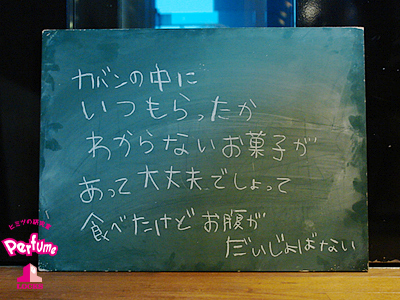 カバンの中に
いつもらったか
わからないお菓子が
あって大丈夫でしょって
食べたけどお腹が
だいじょばない
ヒミツの研究室
Perfume